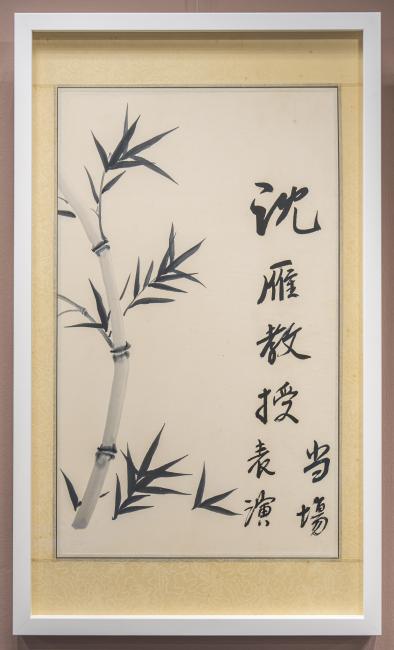 沈雁教授
当場
表演